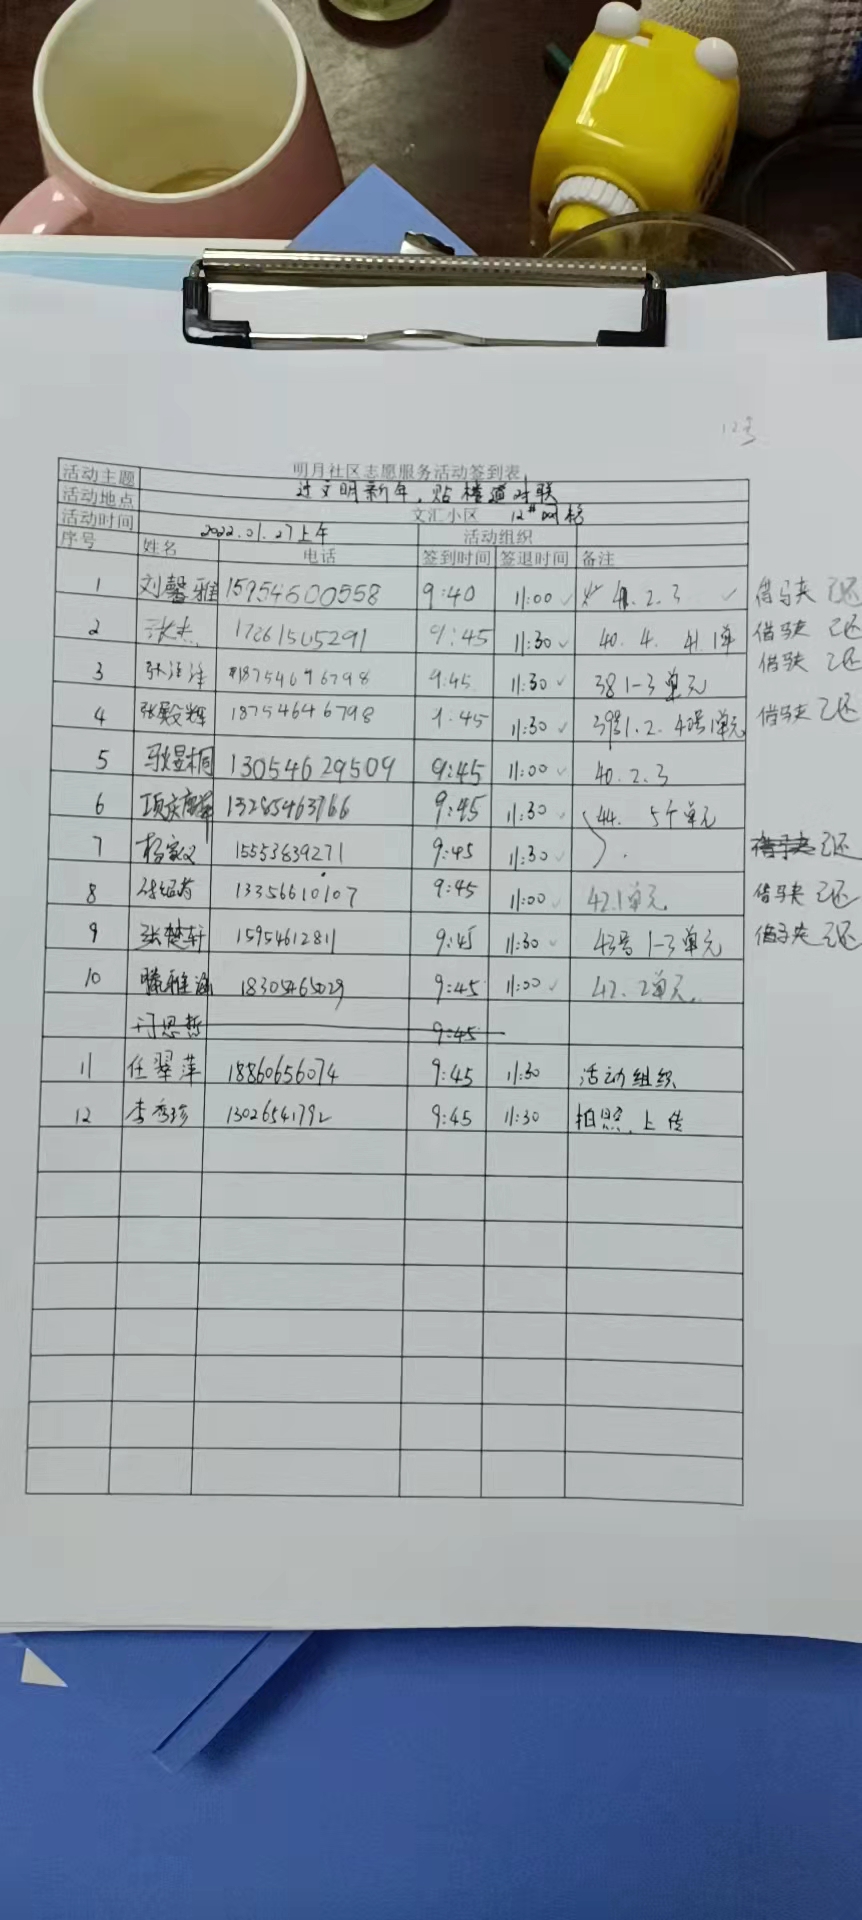 12号
明月社区志愿服务活动签到表
活动主题 过文明新年，贴楼道对联
活动地点 文汇小区 12#网格
活动时间 2022.01.27上午 活动组织
序号 姓名 电话 签到时间 签退时间 备注
1 刘馨雅 15954600558 9:40 11:00 ✓ 41.2.3 ✓ 借马夹 已还
2 张杰 17261505291 9:45 11:30 ✓ 40.4. 41.1单 借马夹 已还
3 18754696798 9:45 11:30 ✓ 38 1-3单元 借马夹 已还
4 张毅辉 18754646798 9:45 11:30 ✓ 39号1.2. 40号1单元 借马夹 已还
5 13054629509 9:45 11:00 ✓ 40.2.3
6 13285463766 9:45 11:30 ✓ 44. 5个单元
7 杨家义 15553839271 9:45 11:30 ✓ 借马夹 已还
8 13356610107 9:45 11:00 ✓ 42.1单元 借马夹 已还
9 张楚轩 15954612811 9:45 11:30 ✓ 43号 1-3单元 借马夹 已还
10 18305465029 9:45 11:00 ✓ 42.2单元
思哲 9:45
11 任翠萍 18860656074 9:45 11:30 活动组织
12 李秀珍 13026541792 9:45 11:30 拍照、上传